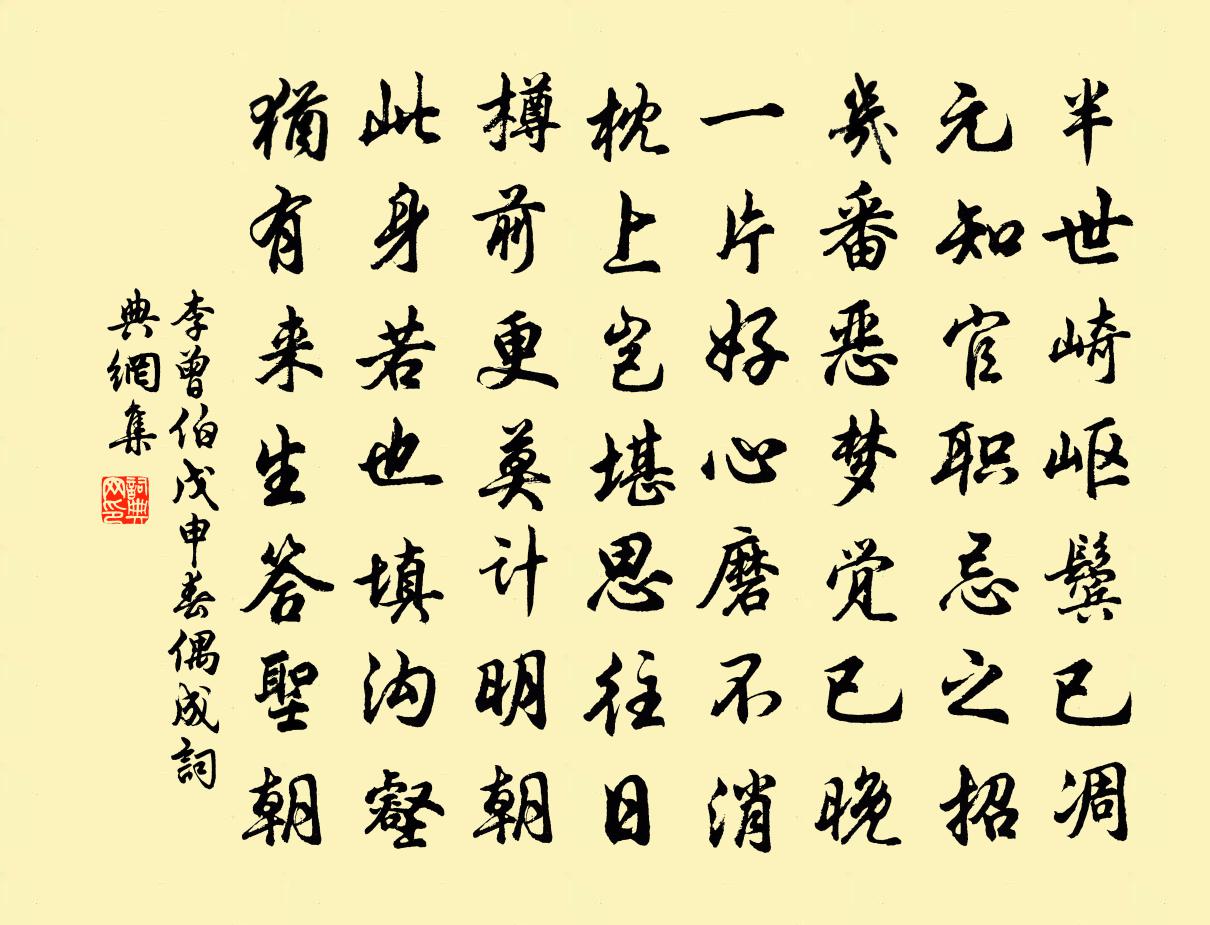 半世崎岖鬓已凋
元知官职忌之招
幾番恶梦觉已晚
一片好心磨不消
枕上岂堪思往日
樽前更莫计明朝
此身若也填沟壑
猶有来生答聖朝
李曾伯戊申春偶成詞
典網集
詞典
网印